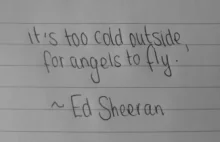 it's too cold outside,
for angels to fly.
~ Ed Sheeran